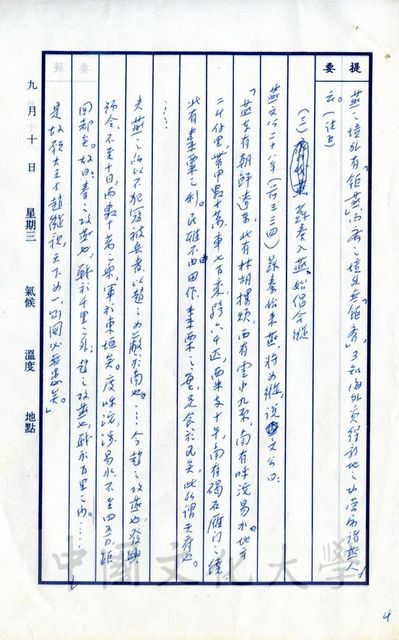 提要
燕之境外有「鉅燕」，齊之境外有「鉅齊」，
云。（注五）
（三）蘇秦入燕始倡合縱
燕文公二十八年（前三三四）蘇秦始來燕將為縱，說文公曰：
「燕東有朝鮮遼東，北有林胡樓煩，西有雲中九原，南有呼沱易水。地方
二千餘里，帶甲數十萬，車七百乘，騎六千匹，粟支十年。南有碣石雁門之饒，
北有棗粟之利。民雖不由田作，棗粟之實，足食於民矣，此所謂天府也。
……
夫燕之所以不犯寇被兵者，以趙之為蔽於南也。……今趙之攻燕也，發興
號令，不至十日，而數十萬之眾，軍於東垣矣。度呼沱，涉易水，不至四五日，距
國都矣。故曰：秦之攻燕也，戰於千里之外；趙之攻燕也，戰於百里之內。……
是故願大王與趙縱親，天下為一，則國必無患矣。」
九月十日 星期三 氣候 溫度 地點
中國文化大學
4